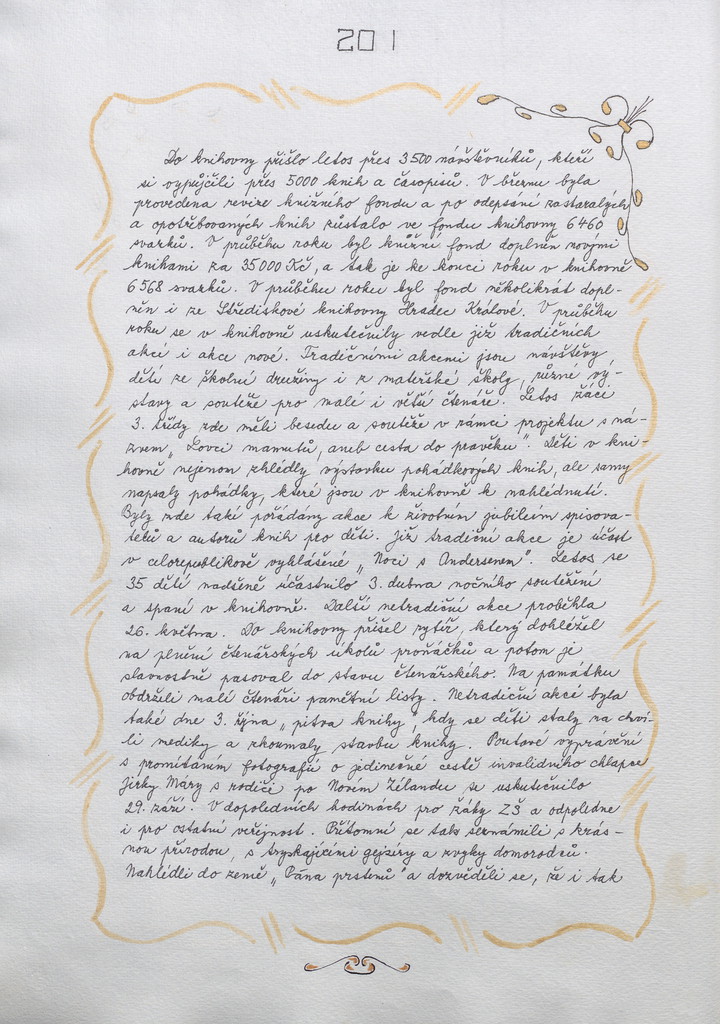 201
Do knihovny přišlo letos přes 3500 návštěvníků, kteří
si vypůjčili přes 5000 knih a časopisů. V březnu byla
provedena revize knižního fondu a po odepsání zastaralých
a opotřebovaných knih zůstalo ve fondu knihovny 6460
svazků. V průběhu roku byl knižní fond doplněn novými
knihami za 35000 Kč, a tak je ke konci roku v knihovně
6568 svazků. V průběhu roku byl fond několikrát dopl-
něn i ze Střediskové knihovny Hradec Králové. V průběhu
roku se v knihovně uskutečnily vedle již tradičních
akcí i akce nové. Tradičními akcemi jsou návštěvy
dětí ze školní družiny i z mateřské školy, různé vý-
stavy a soutěže pro malé i větší čtenáře. Letos žáci
3. třídy zde měli besedu a soutěže v rámci projektu s ná-
zvem „Lovci mamutů, aneb cesta do pravěku". Děti v kni-
hovně nejenom zhlédly výstavku pohádkových knih, ale samy
napsaly pohádky, které jsou v knihovně k nahlédnutí.
Byly zde také pořádány akce k životním jubileím spisova-
telů a autorů knih pro děti. Již tradiční akce je účast
v celorepublikově vyhlášené „Noci s Andersenem". Letos se
35 dětí nadšeně účastnilo 3. dubna nočního soutěžení
a spaní v knihovně. Další netradiční akce proběhla
26. května. Do knihovny přišel rytíř, který dohlížel
na plnění čtenářských úkolů prvňáčků a potom je
slavnostně pasoval do stavu čtenářského. Na památku
obdrželi malí čtenáři pamětní listy. Netradiční akcí byla
také dne 3. října „pitva knihy", kdy se děti staly na chví-
li mediky a zkoumaly stavbu knihy. Poutavé vyprávění
s promítáním fotografií o jedinečné cestě invalidního chlapce
Jirky Máry s rodiči po Novém Zélandu se uskutečnilo
29. září. V dopoledních hodinách pro žáky ZŠ a odpoledne
i pro ostatní veřejnost. Přítomní se tak seznámili s krás-
nou přírodou, s tryskajícími gejzíry a zvyky domorodců.
Nahlédli do země „Pána prstenů" a dozvěděli se, že i tak